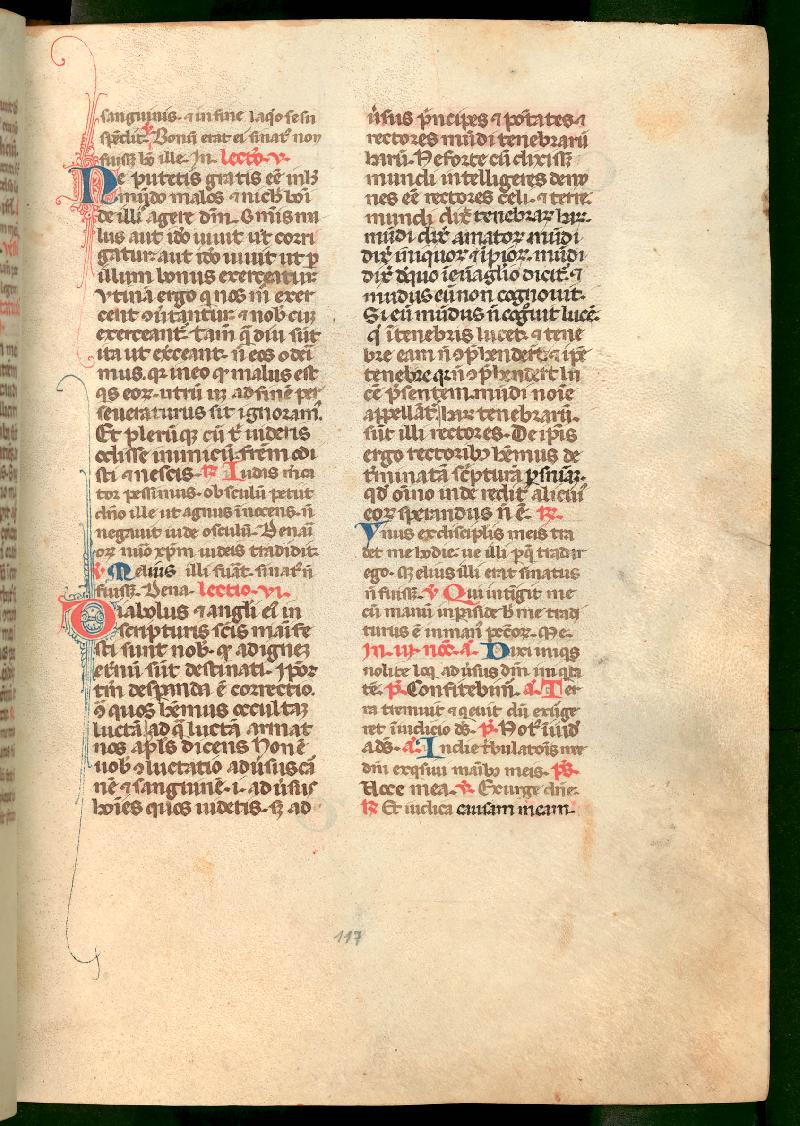 sanguinis. ⁊ in fine laq̄o se sn
spēdit. ℣ Bonū erat ei si nat᷑ non
fuiss; hō ille. In. lectō. v.
Ne putetis gratis eē in h᷒
mūdo malos ⁊ nichil boni
de illi agere dm̄. Omīs ma
lus aut iđo uiuit ut corri
gatur aut iđo uiuit ut ꝑ
illum bonus exerceatur
Vtinā ergo q nos m̄ exer
cent ꝯūtantur ⁊ nobcū
exerceant᷑. tam̄ q̄diu sūt
ita ut exceant. ñ eos odei
mus. qr in eo qͥ malus est
qs eor. utrū uꝫ ad finē per
seueraturus sit ignoram᷒.
Et plerūqꝫ cū t᷑ uideris
odisse inimicū. frēm odi
sti ⁊ nescis. ℟ Iudas m̄ca
tor pessimus. osculū petiit
dn̄o ille ut agnus īnocens. ñ
negauit iude osculū. Denaī
or nūo xp̄m iudeis tradidit.
℣ Melius illi fuat. si nat᷑ ñ
fuiss;. Dena. lectio. vi.
Diabolus ⁊ angli ei in
scripturis scīs maīfe
sti sunt nob. q̄ ad ignez
et̄nū sūt destinati. Ip̄or
tm̄ despanda ē correctio.
ꝯ quos hēmus occultaꝫ
luctā. ad q̄ luctā armat
nos apl̄s dicens Non ē
uob ꝯluctatio adūsus cā
nē ⁊ sanguinē. i. ad ūsus
hoīes quos uidetis. sꝫ ad
ūsus pⁱncipes ⁊ pot̄ates ⁊
rectores mūdi tenebrarū
harū. Ne forte cū dixiss;
mundi intelligeres demo
nes eē rectores celi. ⁊ terre.
mundi dix̄ tenebrar har.
mūdi dix̄ amator mūdi
dix̄ iniquor ⁊ īpior. mūdi
dix̄ d̄ quo ī euāglio dicit. ⁊
mundus eū non cognouit.
Si eū mūdus ñ cogͦuit lucē.
q̄ ī tenebris lucet. ⁊ tene
bre eam ñ ꝯp̄henderūt. ⁊ ip̄e
tenebre q̄ ñ ꝯp̄hendert lu
cē p̄sentem. mūdi noīe
appellāt᷑. har tenebrarū.
sūt illi rectores. De ip̄is
ergo rectoribꝫ hēmus de
t᷑minatā sc̄ptura p̄sniaꝫ.
qđ oīno inde redit᷑ alicui᷒
eor sperandus ñ ē. ℟.
Vnus ex discipulis meis tra
det me hodie. ue illi ꝑ q̄ tradar
ego. ℣ Melius illi erat si natus
ñ fuiss;. ℣ Qui intigit me
cū manū in paside hͥ me tradi
turus ē in manꝰ pcc̄or. Me.
In. iii. noc̄. a. Dixi iniqs
nolite loq̄ adūsus dm̄ iniqta
tē. p̄. Confitebim᷒. a. Ter
ra tremuit ⁊ qeuit dū exūge
ret ī iudicio ds̄. p̄. Not᷒ ī iud
a ds̄. a. In die t᷑bulatiōis mee
dm̄ exqsiui manibꝫ meis. p̄s.
Uoce mea. ℣. Exurge dn̄e.
℟ Et iudica causam meam.
117